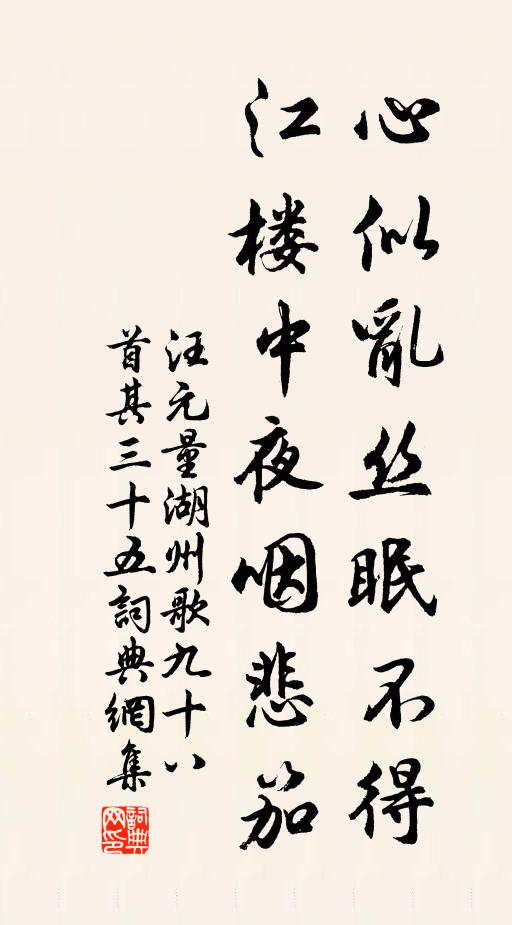 心似亂丝眠不得
江楼中夜咽悲笳
汪元量湖州歌九十八
首其三十五詞典網集
詞典
网印